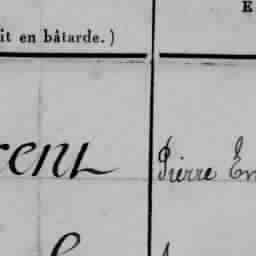 E
it en bâtarde.)
rent Pierre Em